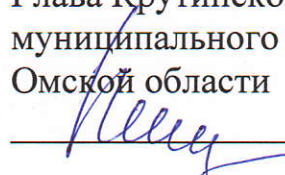 Глава Крутинско
муниципального
Омской области